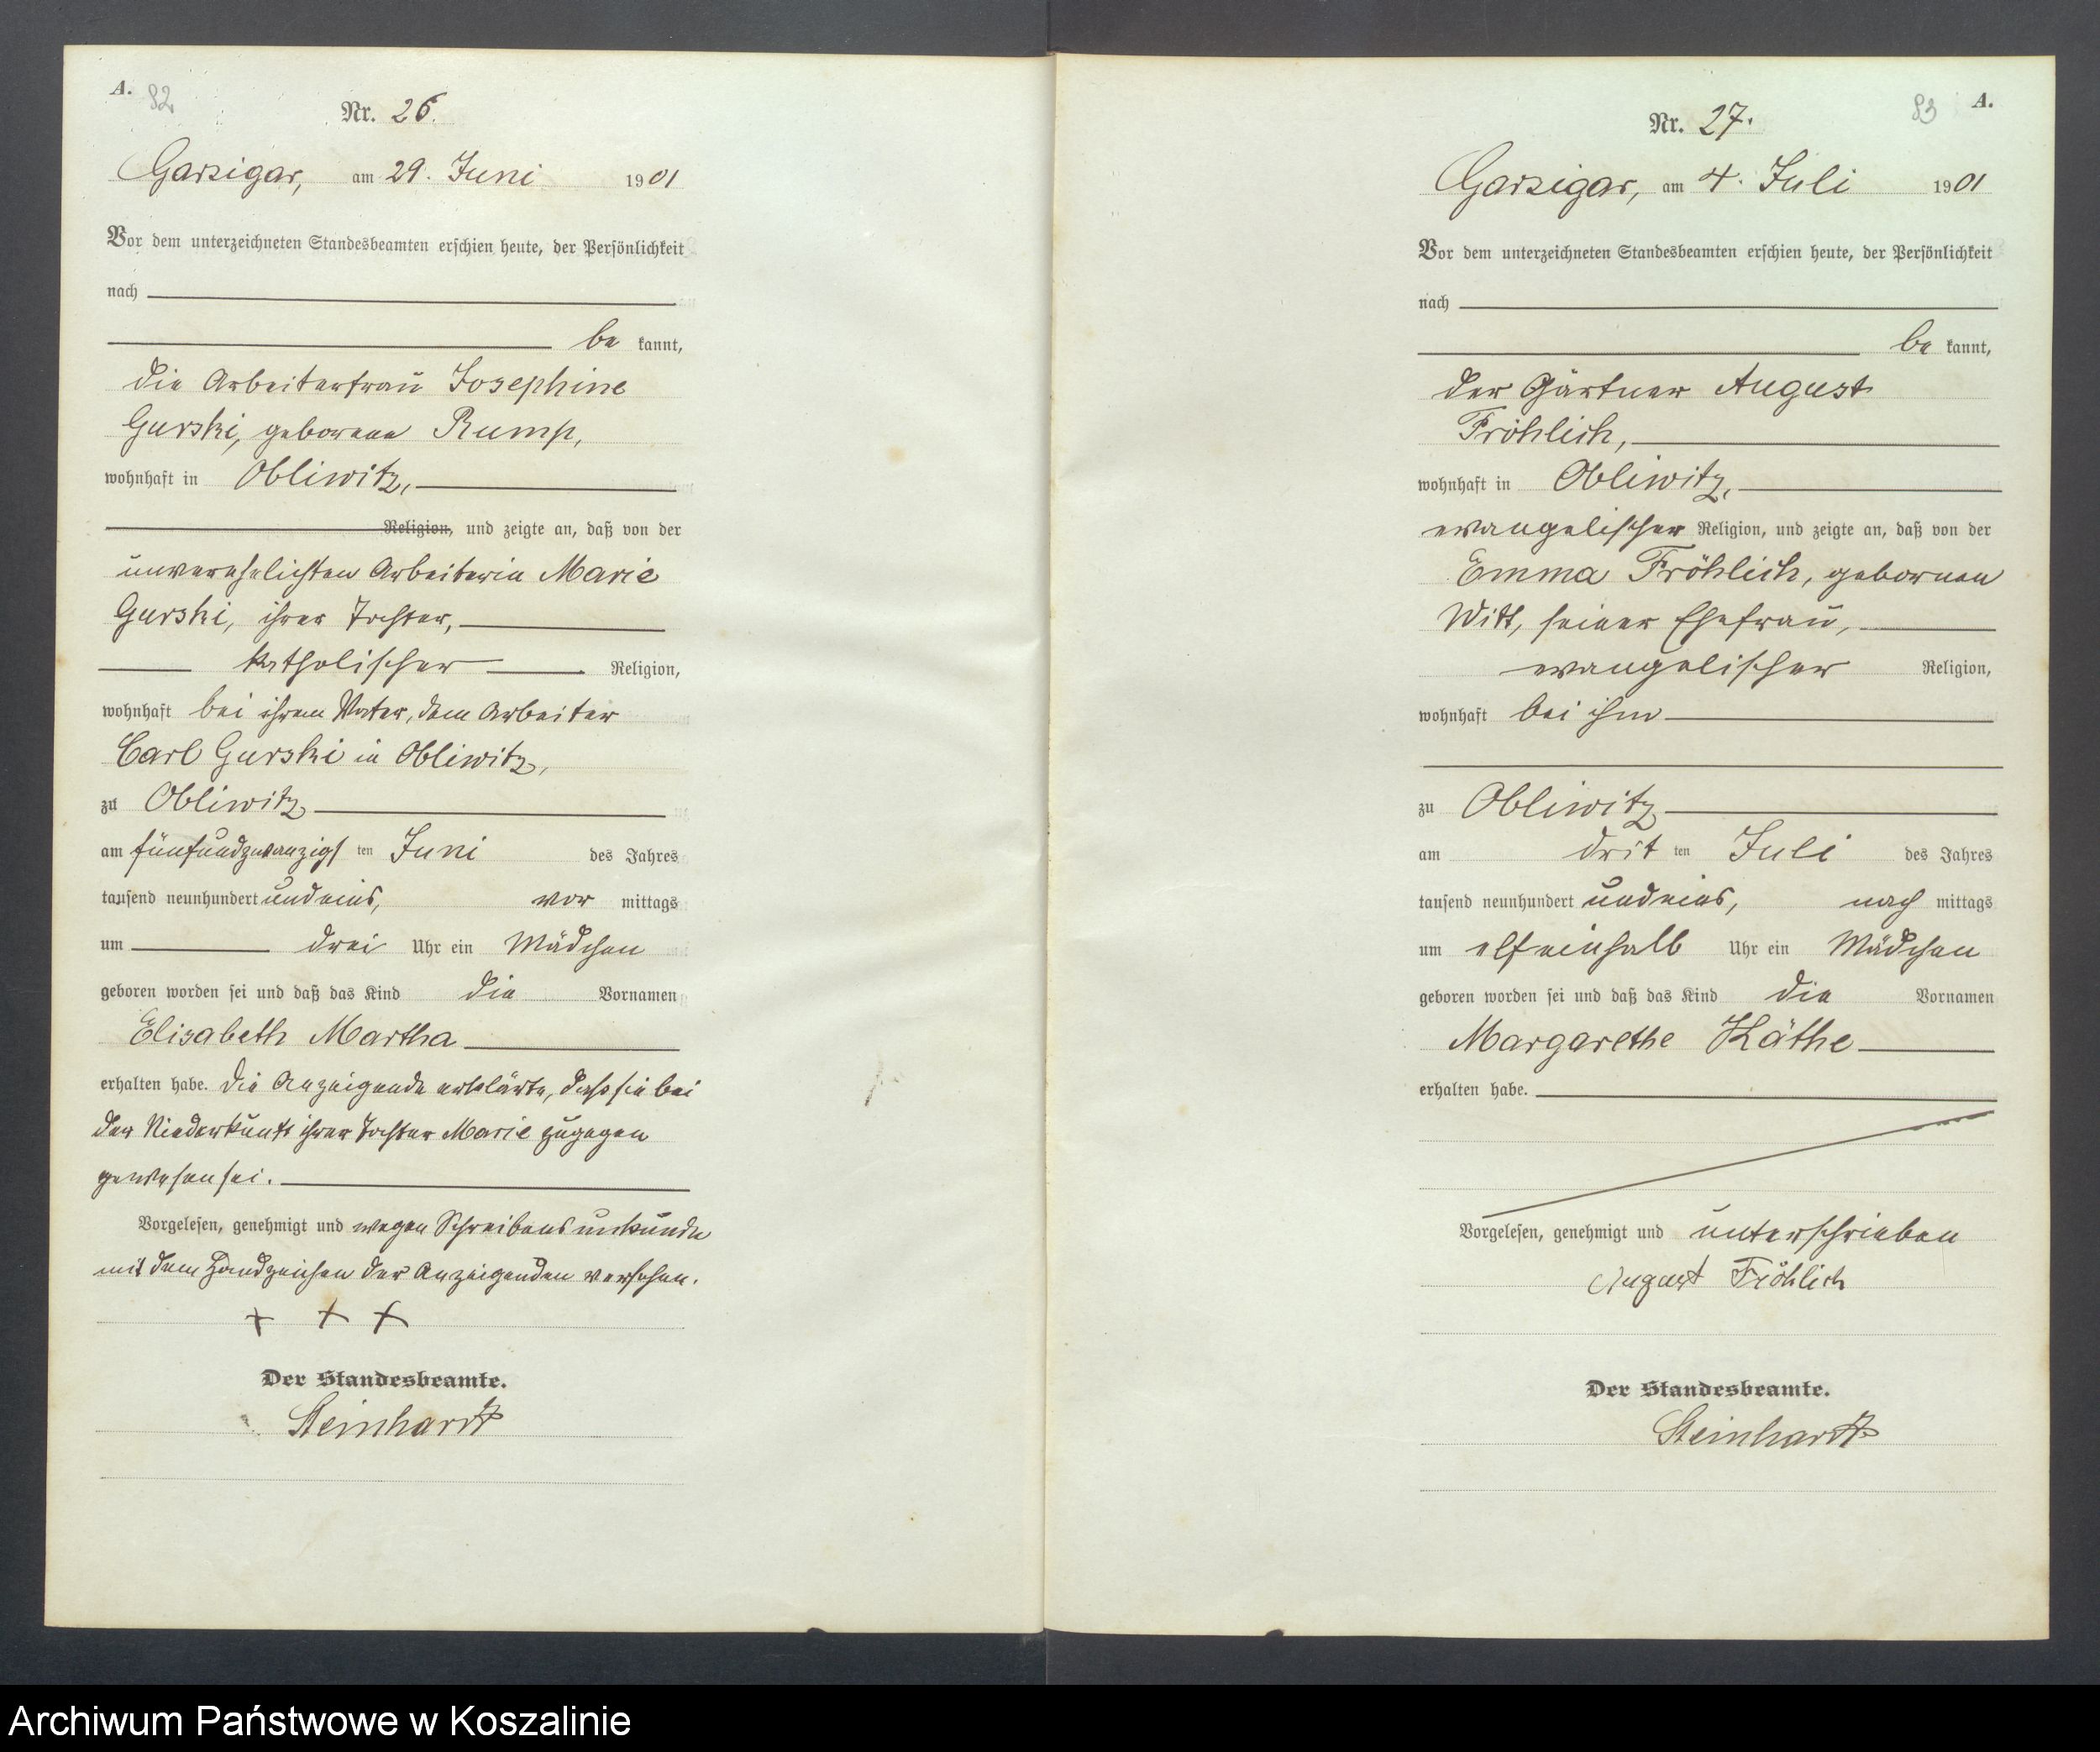 A.
82
Nr. 26.
Garzigar, am 29. Juni 1901
Vor dem unterzeichneten Standesbeamten erschien heute, der Persönlichkeit
nach
be kannt,
die Arbeiterfrau Josephine
Gurski, geborene Rump,
wohnhaft in Obliwitz,
Religion, und zeigte an, daß von der
unverehelichten Arbeiterin Marie
Gurski, ihrer Tochter,
katholischer Religion,
wohnhaft bei ihrem Vater, dem Arbeiter
Carl Gurski in Obliwitz,
zu Obliwitz
am fünfundzwanzigs ten Juni des Jahres
tausend neunhundert undeins, vor mittags
um drei Uhr ein Mädchen
geboren worden sei und daß das Kind die Vornamen
Elisabeth Martha
erhalten habe. Die Anzeigende erklärte, dass sie bei
der Niederkunft ihrer Tochter Marie zugegen
gewesen sei.
Vorgelesen, genehmigt und wegen Schreibensunkunde
mit dem Handzeichen der Anzeigenden versehen.
+ + +
Der Standesbeamte.
Steinhardt
83
A.
Nr. 27.
Garzigar, am 4. Juli 1901
Vor dem unterzeichneten Standesbeamten erschien heute, der Persönlichkeit
nach
be kannt,
der Gärtner August
Fröhlich,
wohnhaft in Obliwitz,
evangelischer Religion, und zeigte an, daß von der
Emma Fröhlich, gebornen
Witt, seiner Ehefrau,
evangelischer Religion,
wohnhaft bei ihm
zu Obliwitz
am drit ten Juli des Jahres
tausend neunhundert undeins, nach mittags
um elfeinhalb Uhr ein Mädchen
geboren worden sei und daß das Kind die Vornamen
Margarethe Käthe
erhalten habe.
Vorgelesen, genehmigt und unterschrieben
August Fröhlich
Der Standesbeamte.
Steinhardt
Archiwum Państwowe w Koszalinie